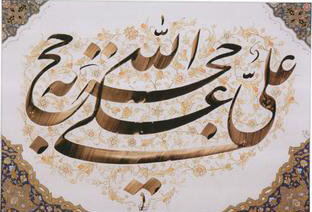 علیّ حجة الله علی حججه